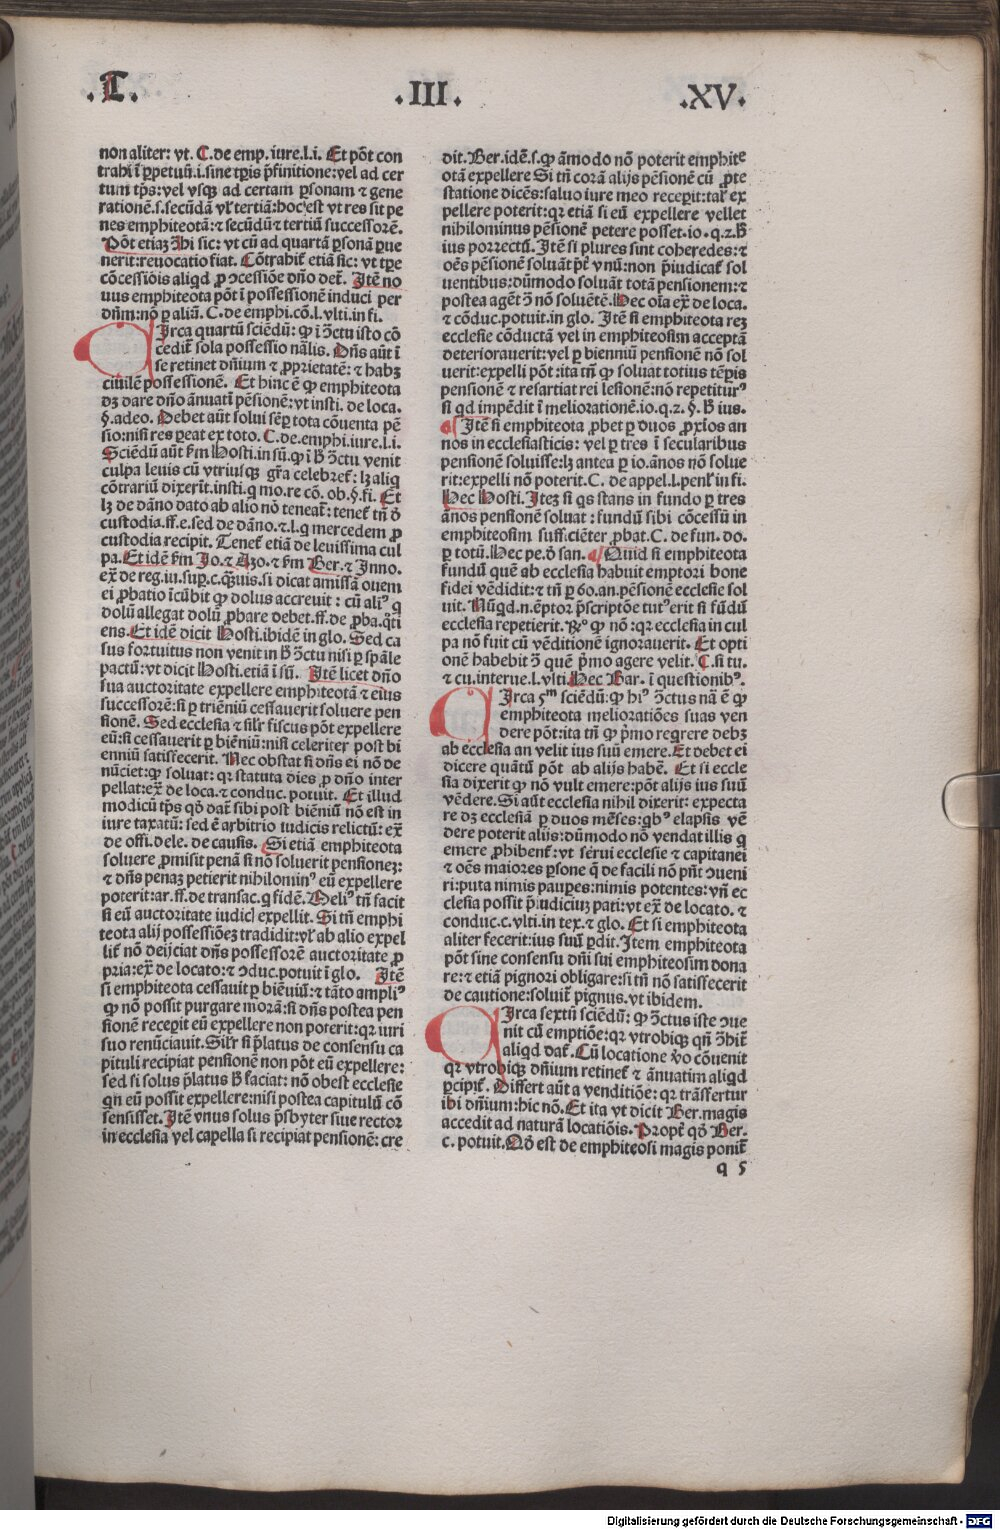 .T.
.III.
.XV.
non aliter: vt. C. de emp. iure. l. i. Et põt con
trahi ĩ ꝑpetuũ. i. sine tꝑis p̃finitione: vel ad cer
tum tp̃s: vel vsq; ad certam ꝑsonam ⁊ gene
rationẽ. s. secũdã vl̃ tertiã: hoc est vt res sit pe
nes emphiteotã: ⁊ secũdũ ⁊ tertiũ successorẽ.
Põt etiaꝫ ꝯhi sic: vt cũ ad quartã ꝑsonã ꝑue
nerit: reuocatio fiat. Cõtrahit̃ etiã sic: vt tꝑe
cõcessiõis aliqd ꝓ ꝯcessiõe dño det̃. Itẽ no
uus emphiteota põt ĩ possessionẽ induci per
dñm: nõ ꝑ aliũ. C. de emphi. cõ. l. vlti. in fi.
Circa quartũ sciẽdũ: ꝙ ĩ ꝯctu isto cõ
cedit̃ sola possessio nãlis. Dñs aũt ĩ
se retinet dñium ⁊ ꝓprietatẽ: ⁊ habꝫ
ciuilẽ possessionẽ. Et hinc ẽ ꝙ emphiteota
dꝫ dare dño ãnuatĩ pẽsionẽ: vt insti. de loca.
§. adeo. Debet aũt solui sẽꝑ tota cõuenta pẽ
sio: nisi res ꝑeat ex toto. C. de. emphi. iure. l. i.
Sciẽdũ aũt fm Hosti. in sũ. ꝙ ĩ h̃ ꝯctu venit
culpa leuis cũ vtriusq; gr̃a celebret̃: lꝫ aliq
cõtrariũ dixerĩt. insti. q mo. re cõ. ob. §. fi. Et
lꝫ de dãno dato ab alio nõ teneat̃: tenet̃ tñ ð
custodia. ff. e. sed de dãno. ⁊. l. q mercedem ꝓ
custodia recipit. Tenet̃ etiã de leuissima cul
pa. Et idẽ fm Jo. ⁊ Azo. ⁊ fm Ber. ⁊ Inno.
ex̃ de reg. iu. suꝑ. c. q̃uis. si dicat amissã ouem
ei ꝓbatio ĩcũbit ꝙ dolus accreuit: cũ aliꝰ q
dolũ allegat dolũ ꝓbare debet. ff. de ꝓba. q̃ti
ens. Et idẽ dicit Hosti. ibidẽ in glo. Sed ca
sus fortuitus non venit in h̃ ꝯctu nisi ꝑ sp̃ale
pactũ: vt dicit Hosti. etiã ĩ sũ. Itẽ licet dño
sua auctoritate expellere emphiteotã ⁊ eius
successorẽ: si ꝑ trieniũ cessauerit soluere pen
sionẽ. Sed ecclesia ⁊ sil̃r fiscus põt expellere
eũ: si cessauerit ꝑ biẽniũ: nisi celeriter post bi
enniũ satisfecerit. Nec obstat si dñs ei nõ de
nũciet: ꝙ soluat: qꝛ statuta dies ꝓ dño inter
pellat: ex̃ de loca. ⁊ conduc. potuit. Et illud
modicũ tp̃s qð dat̃ sibi post biẽniũ nõ est in
iure taxatũ: sed ẽ arbitrio iudicis relictũ: ex̃
de offi. dele. de causis. Si etiã emphiteota
soluere ꝓmisit penã si nõ soluerit pensioneꝫ:
⁊ dñs penaꝫ petierit nihilominꝰ eũ expellere
poterit: ar. ff. de transac. q fidẽ. Meliꝰ tñ facit
si eũ auctoritate iudicl expellit. Si tñ emphi
teota alij possessiõeꝫ tradidit: vl̃ ab alio expel
lit̃ nõ deijciat dñs possessorẽ auctoritate ꝓ
pria: ex̃ de locato: ⁊ ꝯduc. potuit ĩ glo. Itẽ
si emphiteota cessauit ꝑ biẽniũ: ⁊ tãto ampliꝰ
ꝙ nõ possit purgare morã: si dñs postea pen
sionẽ receꝑit eũ expellere non poterit: qꝛ iuri
suo renũciauit. Sil̃r si p̃latus de consensu ca
pituli recipiat pensionẽ non põt eũ expellere:
sed si solus p̃latus h̃ faciat: nõ obest ecclesie
qñ eũ possit expellere: nisi postea capitulũ cõ
sensisset. Itẽ vnus solus p̃sbyter siue rector
in ecclesia vel capella si recipiat pensionẽ: cre
dit. Ber. idẽ. s. ꝙ ãmodo nõ poterit emphite
otã expellere Si tñ corã alijs pẽsionẽ cũ ꝓte
statione dicẽs: saluo iure meo recepit: tal̃r ex
pellere poterit: qꝛ etiã si eũ expellere vellet
nihilominus pẽsionẽ petere posset. io. q. 2. h̃
ius porrectũ. Itẽ si plures sint coheredes: ⁊
oẽs pẽsionẽ soluãt p̃t̃ vnũ: non p̃iudicat̃ sol
uentibus: dũmodo soluãt totã pensionem: ⁊
postea agẽt ꝯ nõ soluẽtẽ. Hec oĩa ex̃ de loca.
⁊ cõduc. potuit. in glo. Itẽ si emphiteota reꝫ
ecclesie cõductã vel in emphiteosim acceptã
deteriorauerit: vel ꝑ bienniũ pensionẽ nõ sol
uerit: expelli põt: ita tñ ꝙ soluat totius tẽꝑis
pensionẽ ⁊ resartiat rei lesionẽ: nõ repetiturꝰ
si qd impẽdit ĩ meliorationẽ. io. q. 2. §. h̃ ius.
¶ Itẽ si emphiteota ꝓbet ꝑ duos ꝓxĩos an
nos in ecclesiasticis: vel ꝑ tres ĩ secularibus
pensionẽ soluisse: lꝫ antea ꝑ io. ãnos nõ solue
rit: expelli nõ poterit. C. de appel. l. penl̃. in fi.
Hec Hosti. Iteꝫ si qs stans in fundo ꝑ tres
ãnos pensionẽ soluat: fundũ sibi cõcessũ in
emphiteosim suff. ciẽter ꝓbat. C. de fun. do.
ꝑ totũ. Hec pe. ð san. ¶ Quid si emphiteota
fundũ quẽ ab ecclesia habuit emptori bone
fidei vẽdidit: ⁊ tñ ꝑ 60. an. pẽsionẽ ecclesie sol
uit. Nũqd. n. ẽptor p̃scriptõe tutꝰ erit si fũdũ
ecclesia repetierit. ꝶ° ꝙ nõ: qꝛ ecclesia in cul
pa nõ fuit cũ vẽditionẽ ignorauerit. Et opti
onẽ habebit ꝯ quẽ p̃mo agere velit. C. si tu.
⁊ cu. interue. l. vlti. Hec Bar. ĩ questionibꝰ.
Circa 5m sciẽdũ: ꝙ hiꝰ ꝯctus nã ẽ ꝙ
emphiteota melioratiões suas ven
dere põt: ita tñ ꝙ p̃mo reqrere debꝫ
ab ecclesia an velit ius suũ emere. Et debet ei
dicere quãtũ põt ab alijs habẽ. Et si eccle
sia dixerit ꝙ nõ vult emere: põt alijs ius suũ
vẽdere. Si aũt ecclesia nihil dixerit: expecta
re dꝫ ecclesiã ꝑ duos mẽses: qbꝰ elapsis vẽ
dere poterit alijs: dũmodo nõ vendat illis q̃
emere ꝓhibent̃: vt serui ecclesie ⁊ capitanei
⁊ oẽs maiores ꝑsone q̃ de facili nõ pñt ꝯueni
ri: puta nimis pauꝑes: nimis potentes: vñ ec
clesia possit p̃iudiciuꝫ pati: vt ex̃ de locato. ⁊
conduc. c. vlti. in tex. ⁊ glo. Et si emphiteota
aliter fecerit: ius suũ ꝑdit. Item emphiteota
põt sine consensu dñi sui emphiteosim dona
re: ⁊ etiã pignori obligare: si tñ nõ satisfecerit
de cautione: soluit̃ pignus. vt ibidem.
Circa sextũ sciẽdũ: ꝙ ꝯctus iste ꝯue
nit cũ emptiõe: qꝛ vtrobiq; qñ ꝯhit̃
aliqd dat̃. Cũ locatione ꝟo cõuenit
qꝛ vtrobiq; dñium retinet̃ ⁊ ãnuatim aliqd
ꝑcipit̃. Differt aũt a venditiõe: qꝛ trãsfertur
ibi dñium: hic nõ. Et ita vt dicit Ber. magis
accedit ad naturã locatiõis. Propt̃ qð Ber.
c. potuit. Qð est de emphiteosi magis ponit̃
q 5
Digitalisierung gefördert durch die Deutsche Forschungsgemeinschaft - DFG